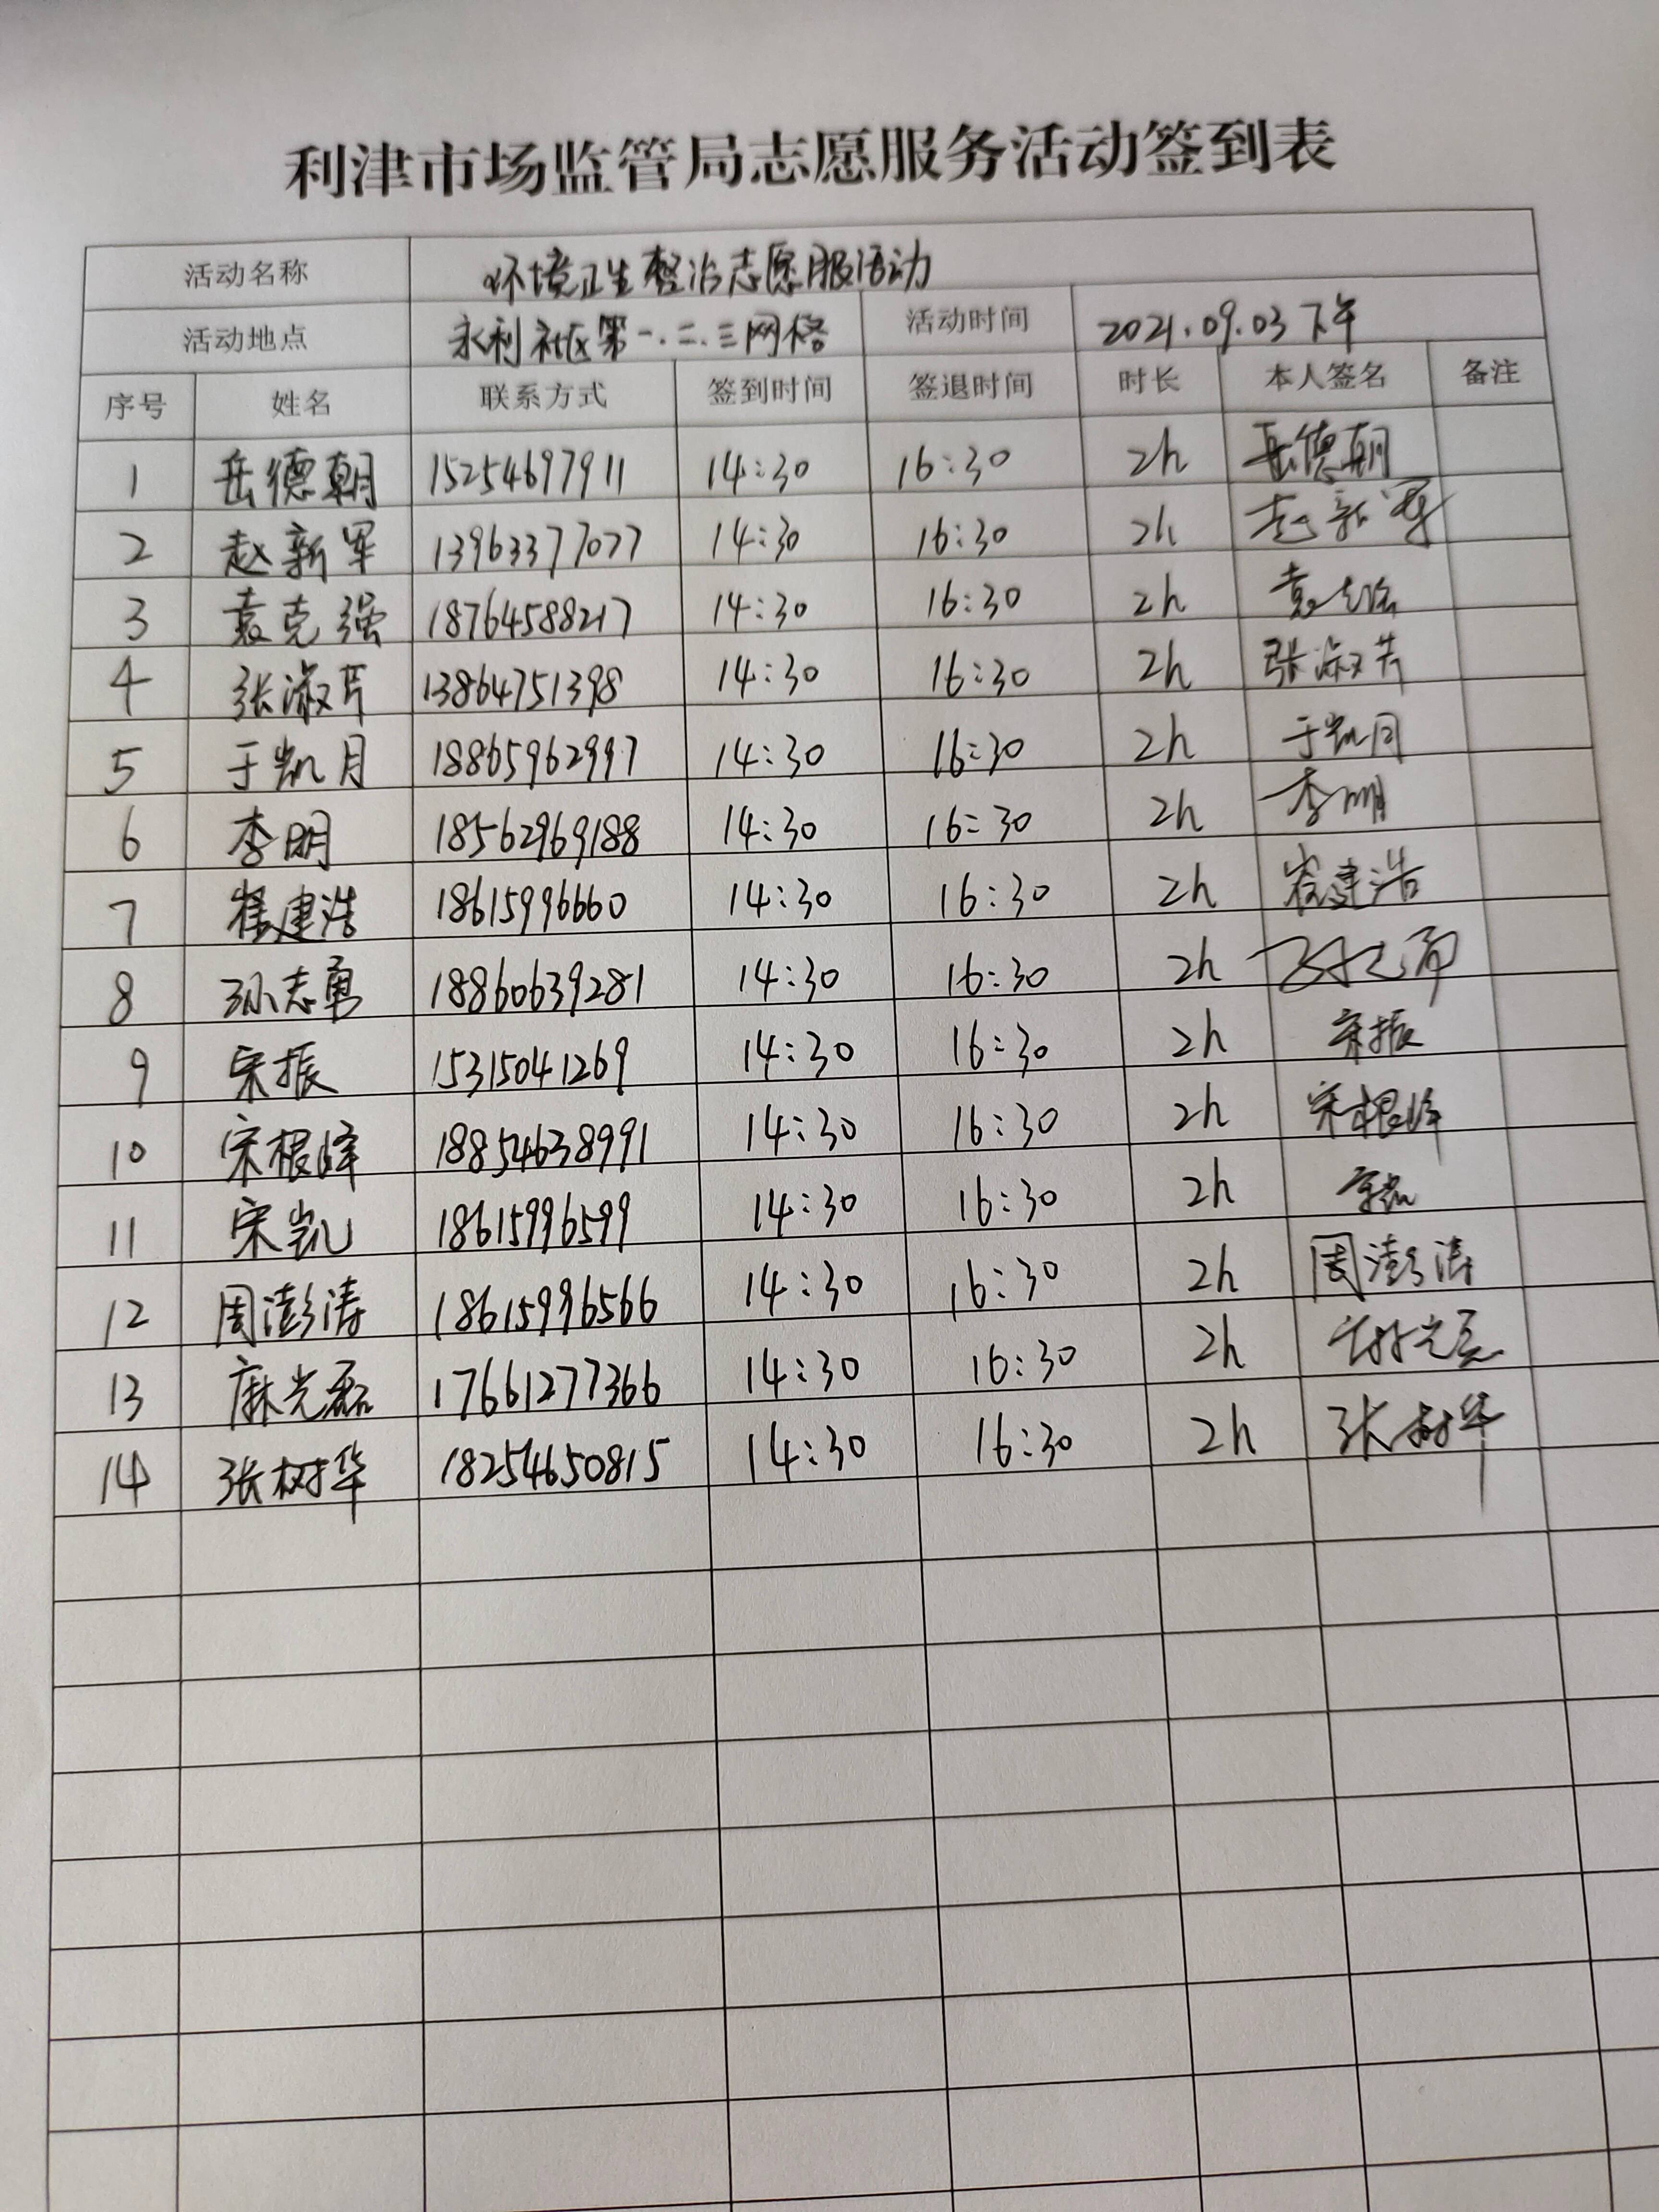 利津市场监管局志愿服务活动签到表
活动名称 环境卫生整治志愿服活动
活动地点 永利社区第一.二.三网格 活动时间 2021.09.03下午
序号 姓名 联系方式 签到时间 签退时间 时长 本人签名 备注
1 岳德朝 15254697911 14:30 16:30 2h 岳德朝
2 赵新军 13963377077 14:30 16:30 2h 赵新军
3 袁克强 18764588217 14:30 16:30 2h 袁克强
4 张淑芹 13864751398 14:30 16:30 2h 张淑芹
5 于凯月 18865962997 14:30 16:30 2h 于凯月
6 李明 18562969188 14:30 16:30 2h 李明
7 崔建浩 18615996660 14:30 16:30 2h 崔建浩
8 孙志勇 18860639281 14:30 16:30 2h 孙志勇
9 宋振 15315041269 14:30 16:30 2h 宋振
10 宋根峰 18854638991 14:30 16:30 2h 宋根峰
11 宋凯 18615996599 14:30 16:30 2h 宋凯
12 周澎涛 18615996566 14:30 16:30 2h 周澎涛
13 麻光磊 17661277366 14:30 16:30 2h 麻光磊
14 张树华 18254650815 14:30 16:30 2h 张树华